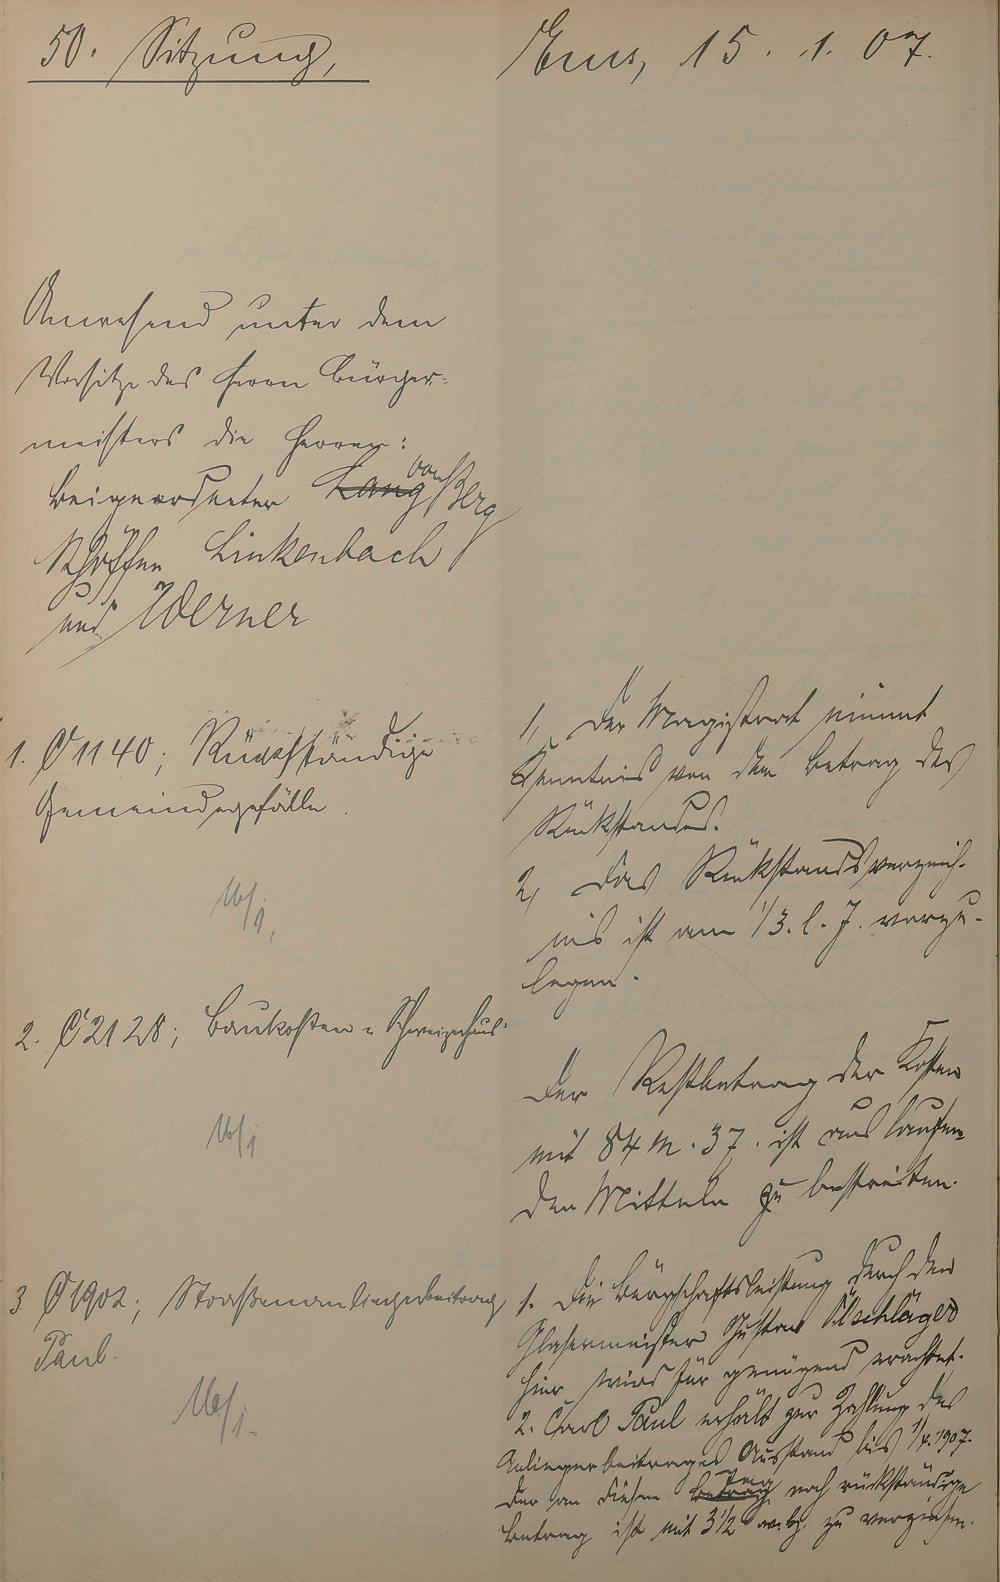 50. Sitzung,
Ems, 15. 1. 07.
Anwesend unter dem
Vorsitze des Herrn Bürger-
meisters die Herren:
Beigeordneter Lang von Berg
Schöffen Linkenbach
und Werner
1. C 1140; Rückständige
Gemeindegefälle.
16/1.
1, Der Magistrat nimmt
Kenntnis von dem Betrag des
Rückstandes.
2, Das Rückstandsverzeich-
nis ist am 1/3. l. J. vorzu-
legen.
2. C 2128; Baukosten - Schweizerhaus
16/1
Der Restbetrag der Kosten
mit 84 M. 37. ist aus laufen-
den Mitteln zu bestreiten.
3 C 1902; Straßenanliegerbeitrag
Paul.
16/1.
1. Die Bürgschaftsleistung durch den
Glasermeister Gustav Ölschläger
hier wird für genügend erachtet.
2. Carl Paul erhält zur Zahlung des
Anliegerbeitrages Ausstand bis 1/4. 1907.
Der an diesem Betrag Tag noch rückständige
Betrag ist mit 3 1/2 zu verzinsen.